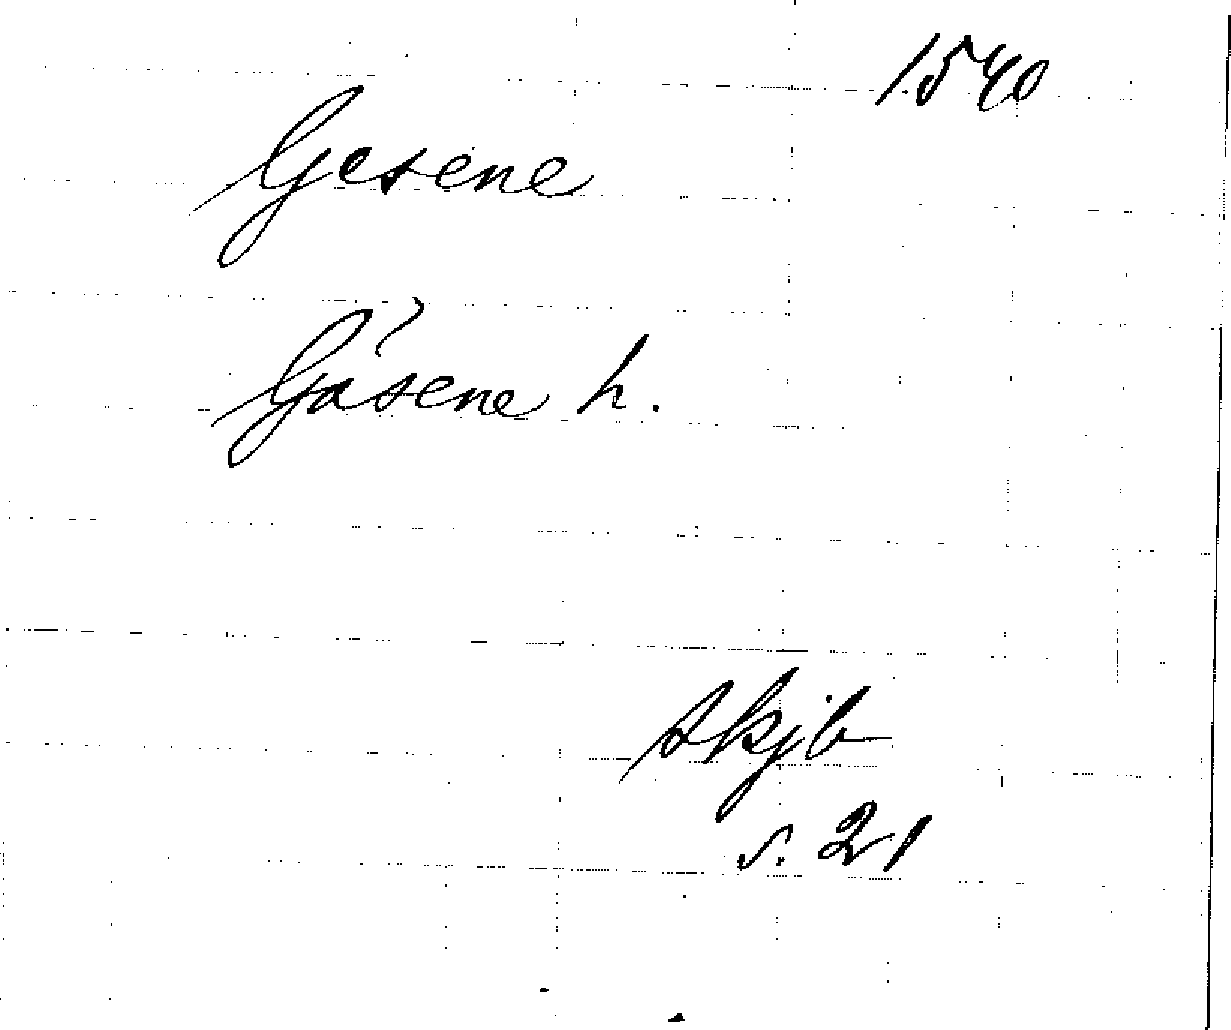 1540
Gesene
Gåsene h.
Skjb
s. 21